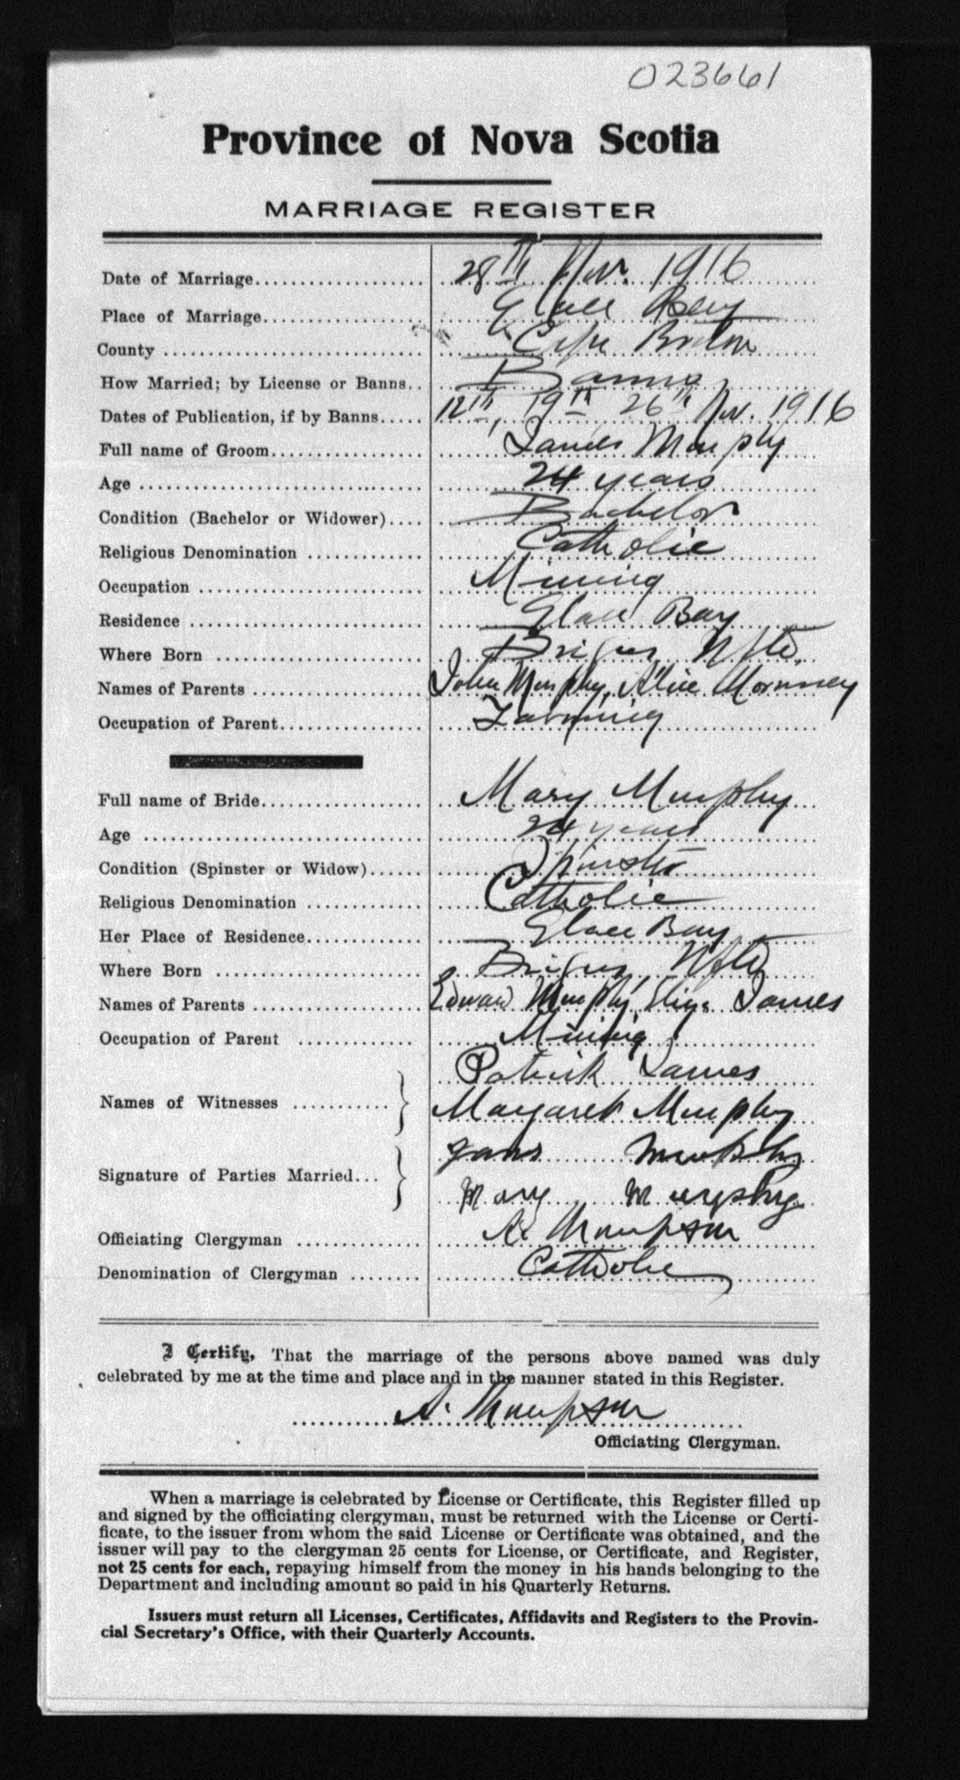 023661
Province of Nova Scotia
MARRIAGE REGISTER
Date of Marriage 28TH Nov. 1916
Place of Marriage Glace Bay
County Cape Breton
How Married; by License or Banns Banns
Dates of Publication, if by Banns 12TH, 19TH 26TH Nov. 1916
Full name of Groom James Murphy
Age 24 years
Condition (Bachelor or Widower) Bachelor
Religious Denomination Catholic
Occupation Mining
Residence Glace Bay
Where Born Brigus Nfld.
Names of Parents John Murphy, Alice
Occupation of Parent Farming
Full name of Bride Mary Murphy
Age 24 years
Condition (Spinster or Widow) Spinster
Religious Denomination Catholic
Her Place of Residence Glace Bay
Where Born Brigus, Nfld
Names of Parents Edward Murphy, James
Occupation of Parent Mining
Patrick James
Names of Witnesses
Margaret Murphy
Murphy
Signature of Parties Married
Mary
Officiating Clergyman A. Thompson
Denomination of Clergyman Catholic
I Certify, That the marriage of the persons above named was duly
celebrated by me at the time and place and in the manner stated in this Register.
A. Thompson
Officiating Clergyman.
When a marriage is celebrated by License or Certificate, this Register filled up
and signed by the officiating clergyman, must be returned with the License or Certi-
ficate, to the issuer from whom the said License or Certificate was obtained, and the
issuer will pay to the clergyman 25 cents for License, or Certificate, and Register,
not 25 cents for each, repaying himself from the money in his hands belonging to the
Department and including amount so paid in his Quarterly Returns.
Issuers must return all Licenses, Certificates, Affidavits and Registers to the Provin-
cial Secretary's Office, with their Quarterly Accounts.